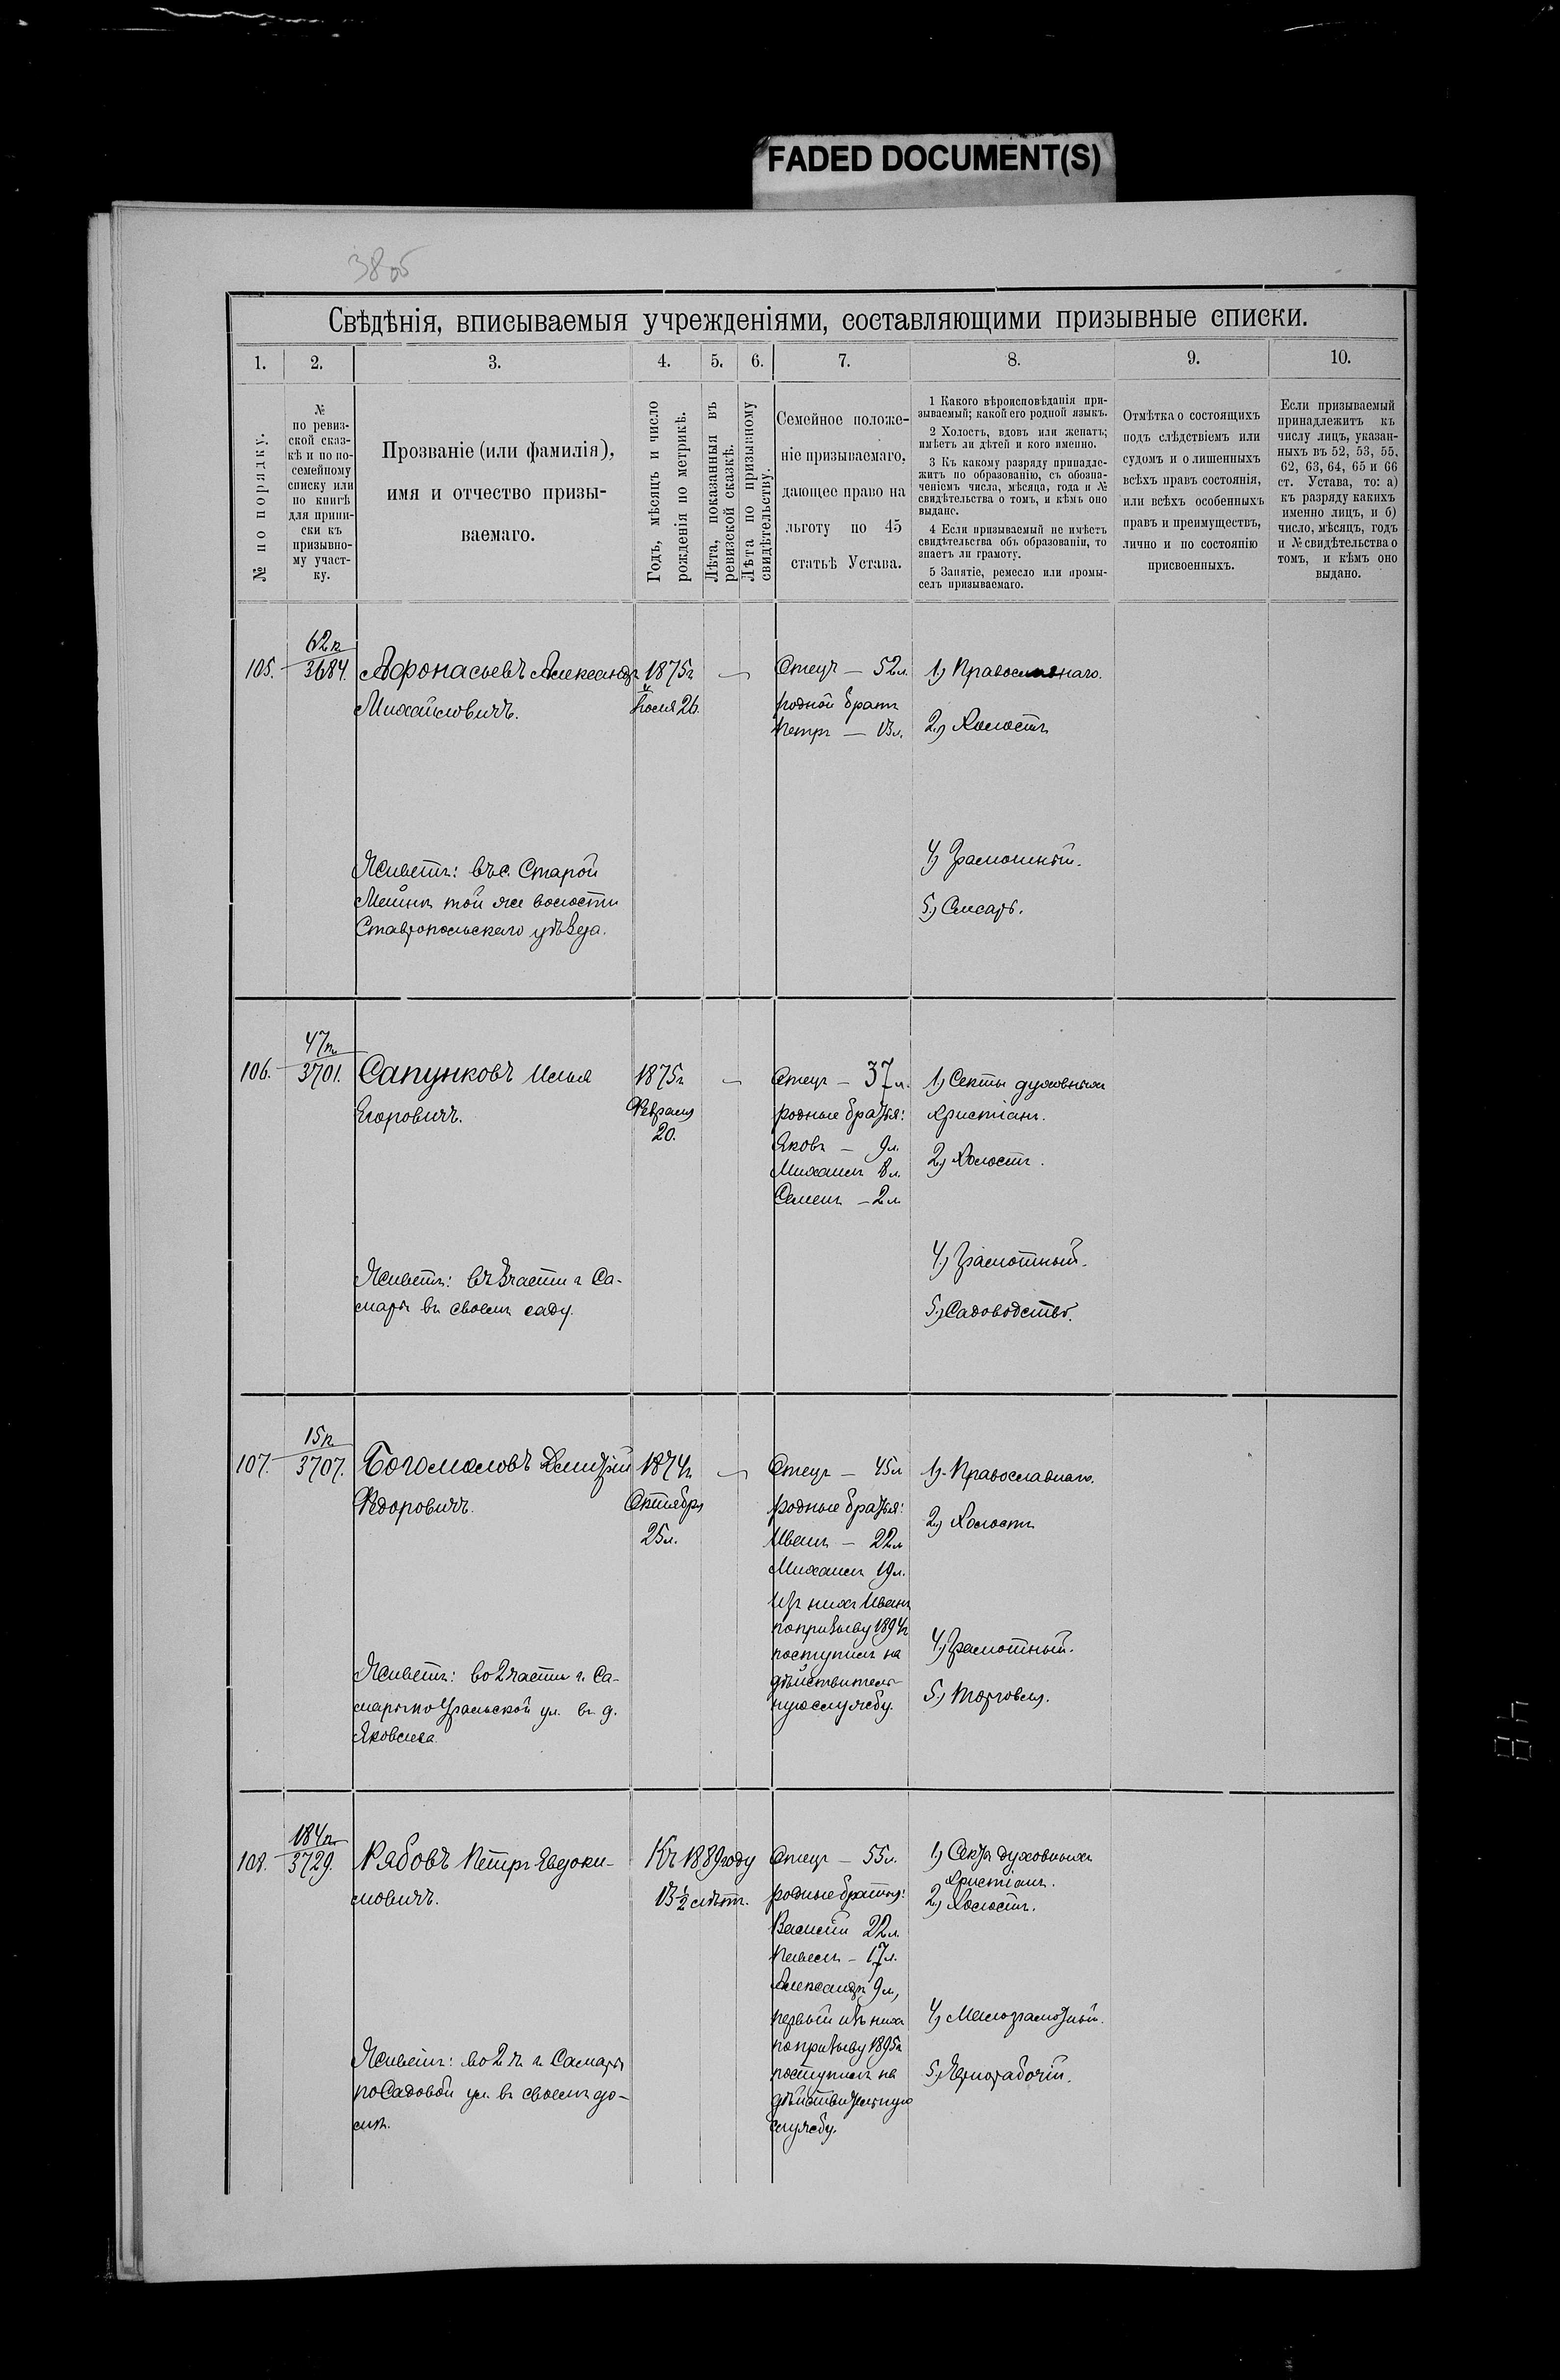 FADED DOCUMENT(S)
38об
Свѣдѣнія, вписываемыя учрежденіями, составляющими призывные списки.
1. 2. 3. 4. 5. 6. 7. 8. 9. 10.
№ по порядку.
№
по ревиз-
ской сказ-
кѣ и по по-
семейному
списку или
по книгѣ
для припи-
ски къ
призывно-
му участ-
ку.
Прозваніе (или фамилія),
имя и отчество призы-
ваемаго.
Годъ, мѣсяцъ и число
рожденія по метрикѣ.
Лѣта, показанныя въ
ревизской сказкѣ.
Лѣта по призывному
свидѣтельству.
Семейное положе-
ніе призываемаго,
дающее право на
льготу по 45
статьѣ Устава.
1 Какого вѣроисповѣданія при-
зываемый; какой его родной языкъ.
2 Холостъ, вдовъ или женатъ;
имѣетъ ли дѣтей и кого именно.
3 Къ какому разряду принадле-
житъ по образованію, съ обозна-
ченіемъ числа, мѣсяца, года и №
свидѣтельства о томъ, и кѣмъ оно
выдано.
4 Если призываемый не имѣетъ
свидѣтельства объ образованіи, то
знаетъ ли грамоту.
5 Занятіе, ремесло или промы-
селъ призываемаго.
Отмѣтка о состоящихъ
подъ слѣдствіемъ или
судомъ и о лишенныхъ
всѣхъ правъ состоянія,
или всѣхъ особенныхъ
правъ и преимуществъ,
лично и по состоянію
присвоенныхъ.
Если призываемый
принадлежитъ къ
числу лицъ, указан-
ныхъ въ 52, 53, 55,
62, 63, 64, 65 и 66
ст. Устава, то: а)
къ разряду какихъ
именно лицъ, и б)
число, мѣсяцъ, годъ
и № свидѣтельства о
томъ, и кѣмъ оно
выдано.
105.
62п
3684.
Афонасьевъ Александръ
Михайловичъ.
Живетъ: въ с. Старой
Майнѣ той же волости
Ставропольскаго уѣзда.
1875г
Іюля 26.
Отецъ — 52л.
родной братъ
Петръ — 13л.
1) Православнаго.
2) Холостъ
4) Грамотный.
5) Слесарь.
106.
47п
3701.
Сапунковъ Илья
Егоровичъ.
Живетъ: въ 3 части г. Са-
мары въ своемъ саду.
1875г
Февраля
20.
Отецъ — 37л.
родные братья:
Яковъ — 9л.
Михаилъ 8л.
Семенъ — 2л.
1) Секты духовныхъ
христіанъ.
2) Холостъ.
4) Грамотный.
5) Садоводство.
107.
15п
3707.
Богомоловъ Дмитрій
Федоровичъ.
Живетъ: во 2 части г. Са-
мары по Уральской ул. въ д.
Яковлева.
1874г
Октября
25л.
Отецъ — 45л
родные братья:
Иванъ — 22л
Михаилъ 19л.
Изъ нихъ Иванъ
по призыву 1894г
поступилъ на
дѣйствитель-
ную службу.
1) Православнаго.
2) Холостъ
4) Грамотный.
5) Торговля.
108.
184п
3729.
Рябовъ Петръ Евдоки-
мовичъ.
Живетъ: во 2 ч. г. Самары
по Садовой ул. въ своемъ до-
мѣ.
Къ 1889 году
13 ½ лѣтъ.
Отецъ — 55л.
родные братья:
Василій 22л.
Павелъ — 17л.
Александръ 9л,
первый изъ нихъ
по призыву 1895г
поступилъ на
дѣйствительную
службу.
1) Секты духовныхъ
христіанъ.
2) Холостъ.
4) Малограмотный.
5) Чернорабочій.
48